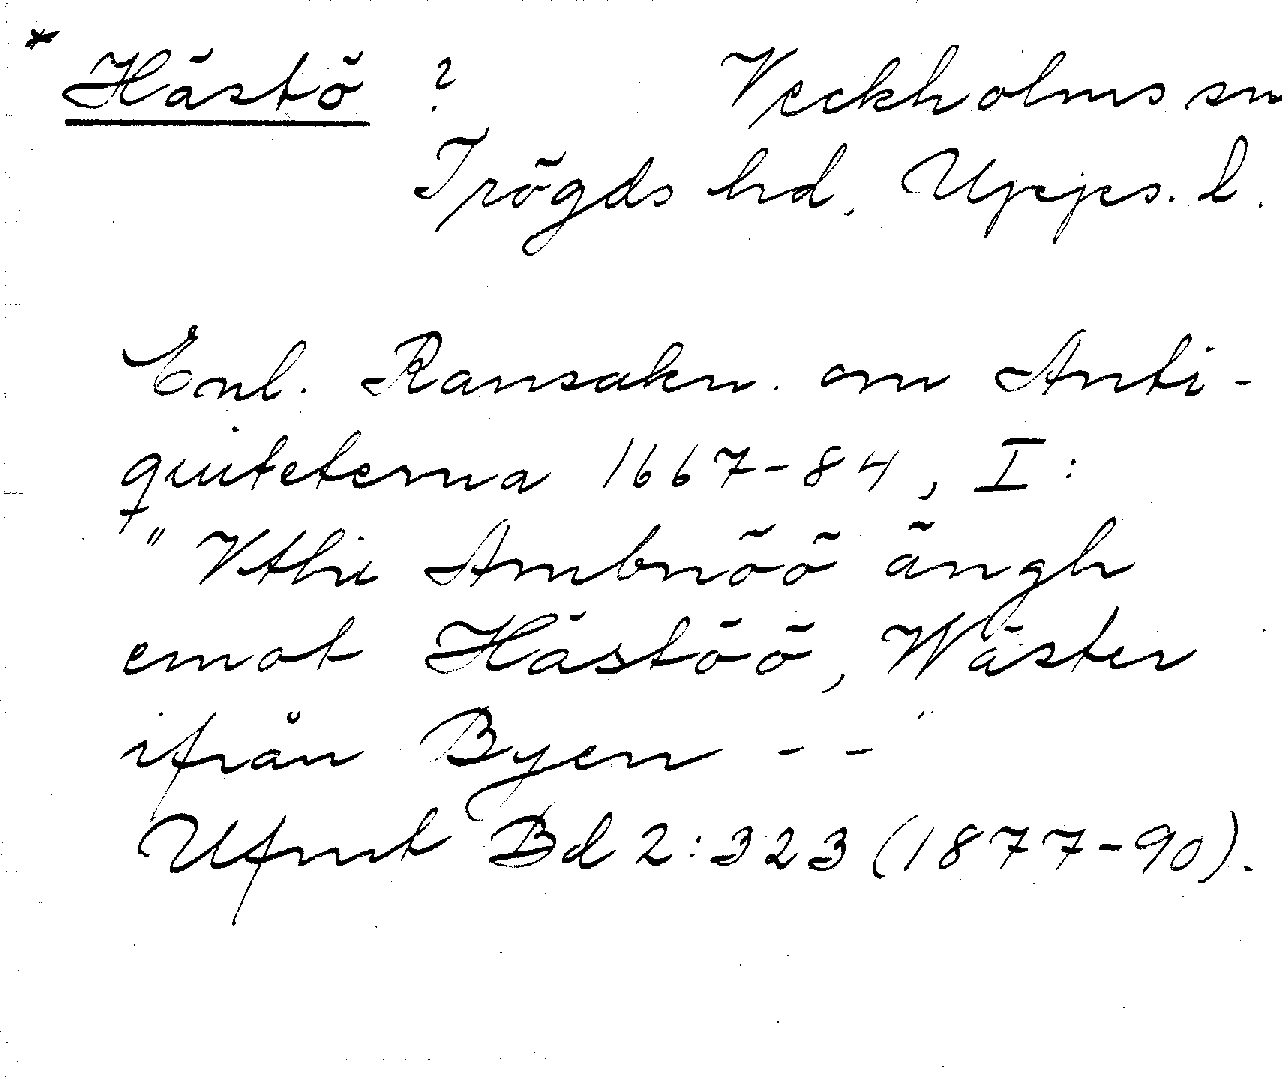 * Hästö ? Veckholms sn
Trögds hd, Upps. l.
Enl. Ransakn. om Anti-
quiteterna 1667-84, I:
"Vthi Ambnöö ängh
emot Hästöö, Wäster
ifrån Byen - - "
Ufmt Bd 2:323 (1877-90).